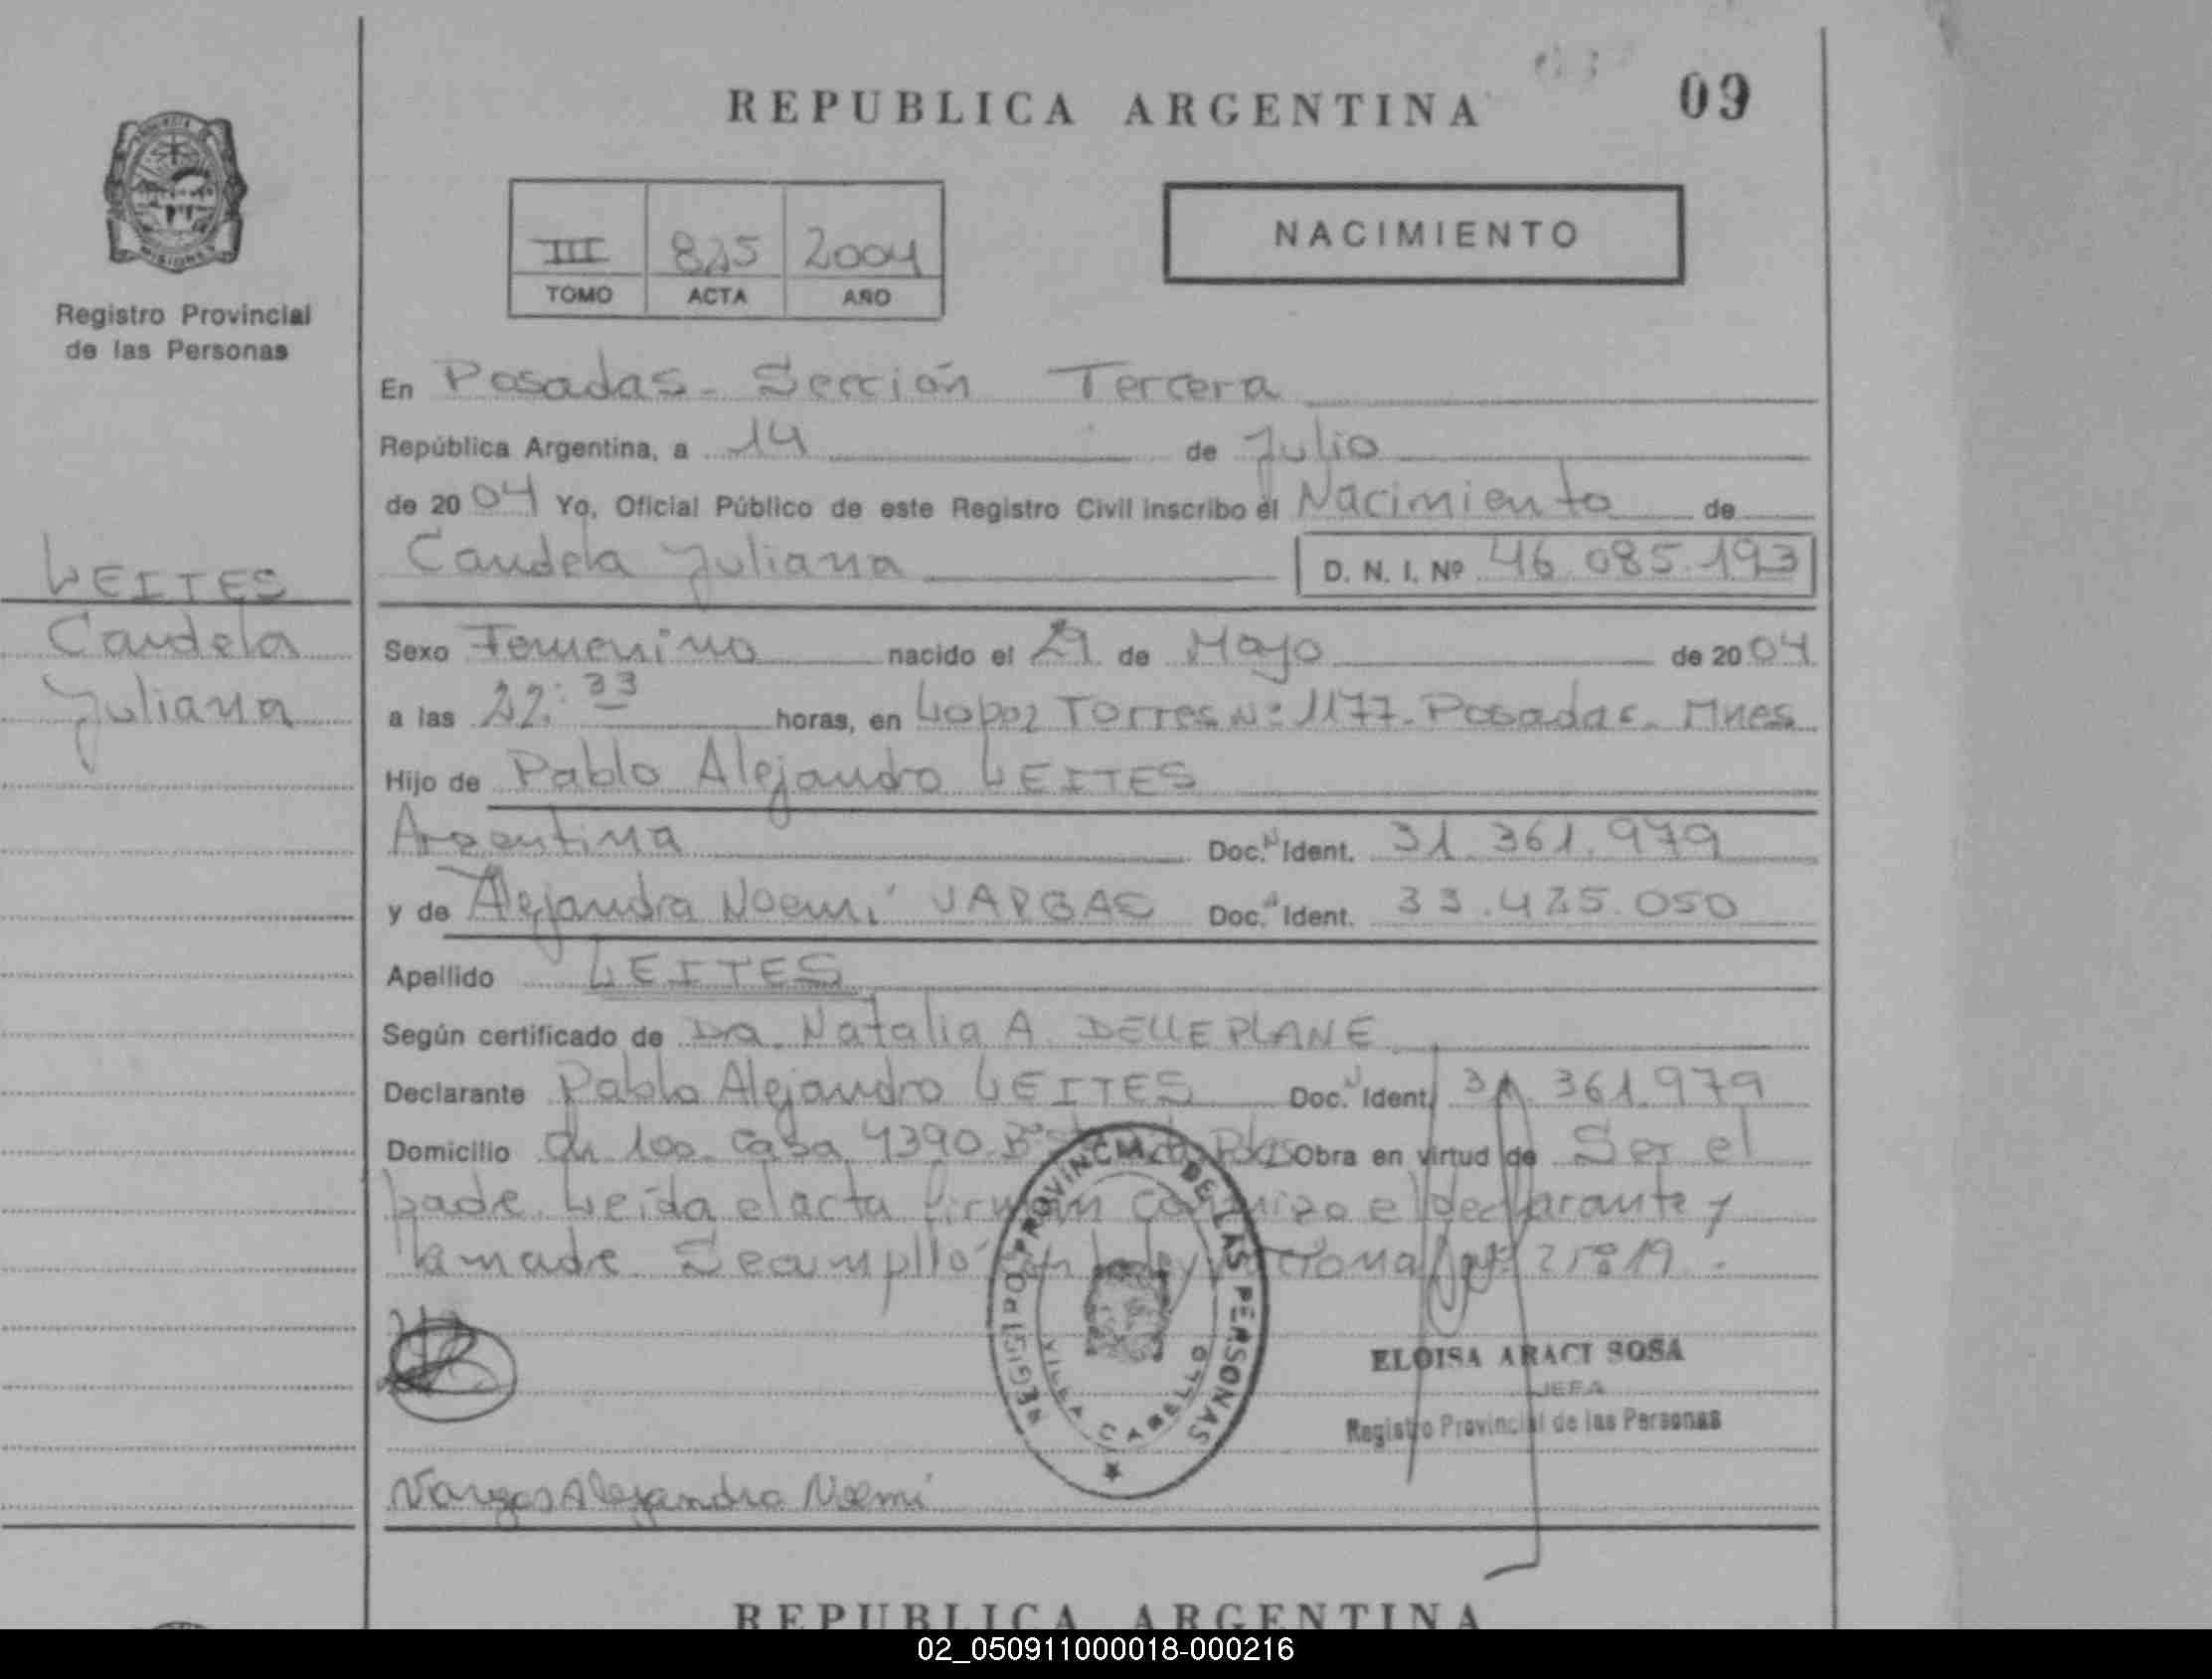 REPUBLICA ARGENTINA
09
PROVINCIA DE MISIONES
Registro Provincial
de las Personas
III 825 2004
TOMO ACTA AÑO
NACIMIENTO
En Posadas - Sección Tercera
República Argentina, a 14 de Julio
de 2004 Yo, Oficial Público de este Registro Civil inscribo el Nacimiento de
Candela Juliana D. N. I. Nº 46.085.193
LEITES
Candela
Juliana
Sexo Femenino nacido el 29 de Mayo de 2004
a las 22:33 horas, en Lopez Torres Nº 1177. Posadas. Mnes
Hijo de Pablo Alejandro LEITES
Argentina Doc. N Ident. 31.361.979
y de Alejandra Noemí VARGAS Doc. N Ident. 33.425.050
Apellido LEITES
Según certificado de Dra. Natalia A. DELLEPLANE
Declarante Pablo Alejandro LEITES Doc. N Ident. 31.361.979
Domicilio Ch 100 Casa 4390 Pdas Obra en virtud de Ser el
padre. Leída el acta firman conmigo el declarante y
la madre. Se cumplió
REGISTRO PROVINCIAL DE LAS PERSONAS
VILLA CABELLO
ELOISA ARACI SOSA
JEFA
Registro Provincial de las Personas
Vargas Alejandra Noemi
REPUBLICA ARGENTINA
02_050911000018-000216